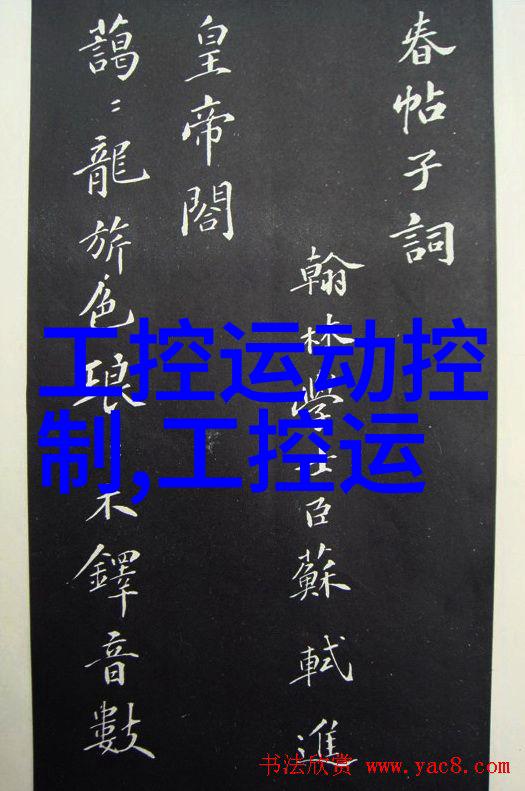 春帖子詞
翰林學士臣蘇軾進
皇帝閣
藹〻龍旂色琅木鐸音數
工控运动控
制,工控运
书法欣赏 www.yac8.com